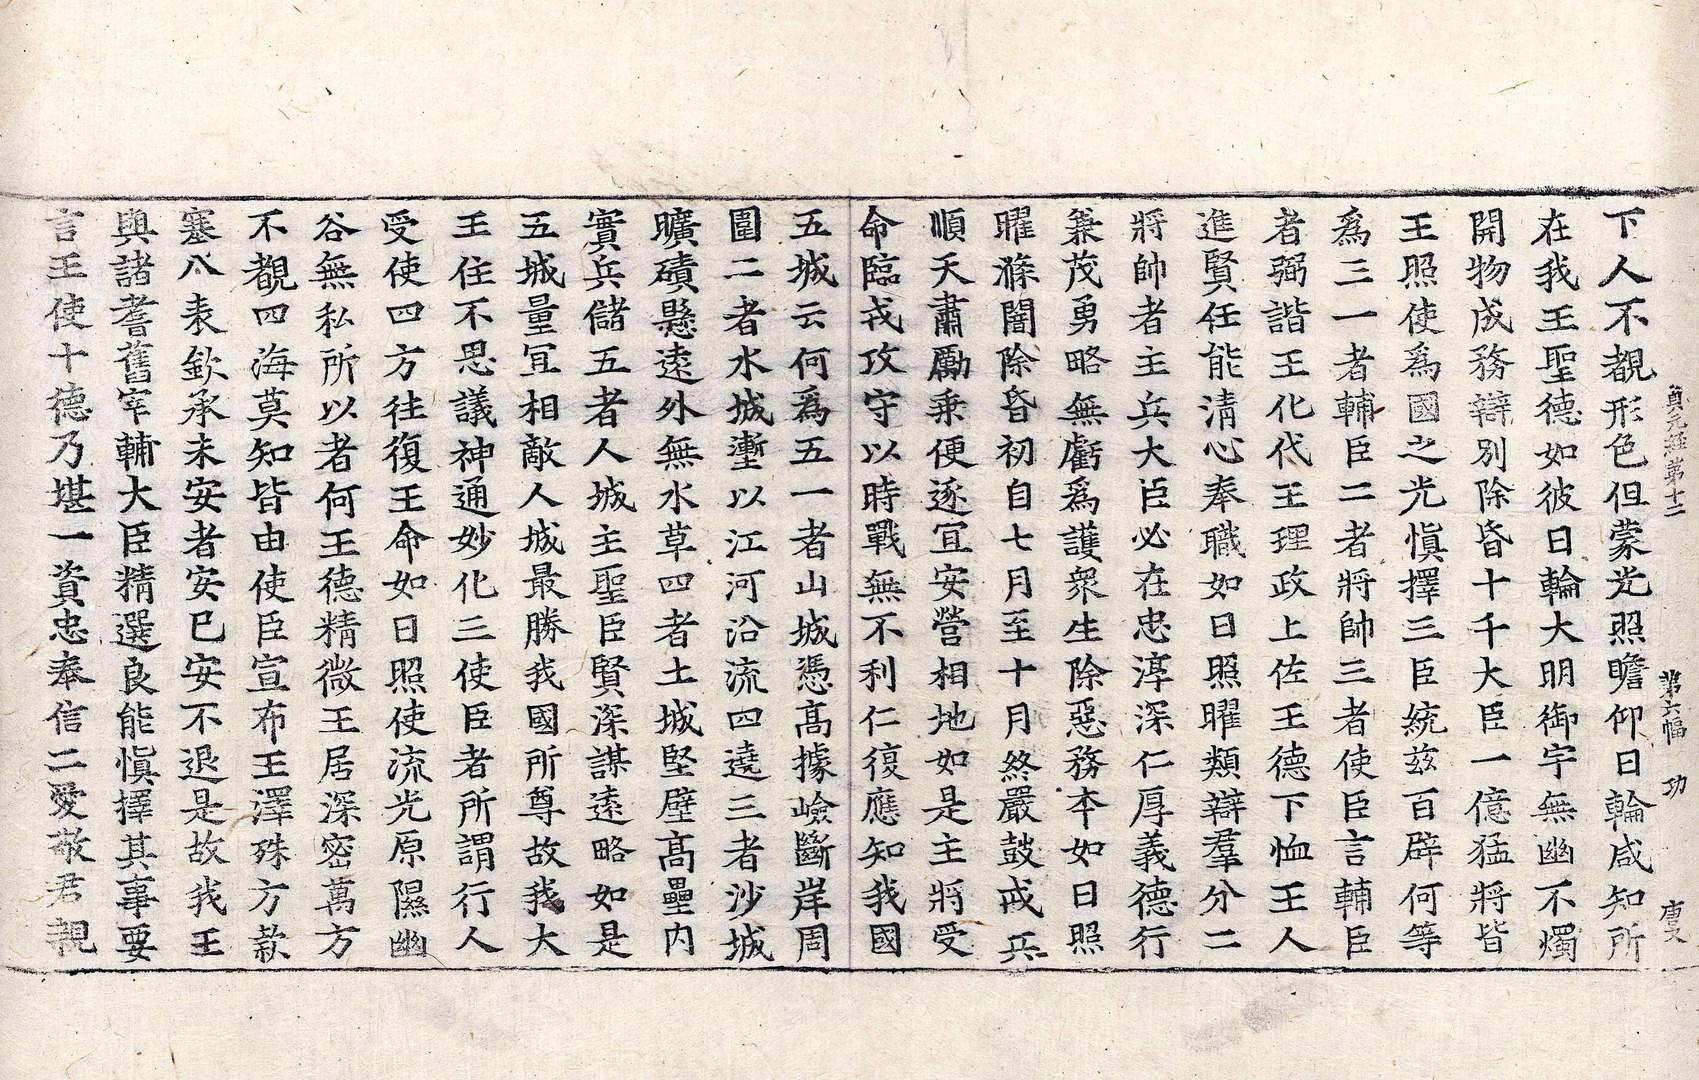 貞元經第十二 第六幅 功 唐文
下人不覩形色但蒙光照瞻仰日輪咸知所
在我王聖德如彼日輪大明御宇無幽不燭
開物成務辯別除昏十千大臣一億猛將皆
王照使爲國之光愼擇三臣統兹百辟何等
爲三一者輔臣二者將帥三者使臣言輔臣
者弼諧王化代王理政上佐王德下恤王人
進賢任能清心奉職如日照曜類辯羣分二
將帥者主兵大臣必在忠淳深仁厚義德行
兼茂勇略無虧爲護衆生除惡務本如日照
曜滌闇除昏初自七月至十月終嚴鼓戒兵
順天肅勵乗便逐宜安營相地如是主將受
命臨戎攻守以時戰無不利仁復應知我國
五城云何爲五一者山城憑髙據嶮斷岸周
圍二者水城壍以江河沿流四遶三者沙城
曠磧懸遠外無水草四者土城堅壁髙壘内
實兵儲五者人城主聖臣賢深謀遠略如是
五城量宜相敵人城最勝我國所尊故我大
王住不思議神通妙化三使臣者所謂行人
受使四方往復王命如日照使流光原隰幽
谷無私所以者何王德精微王居深密萬方
不覩四海莫知皆由使臣宣布王澤殊方款
塞八表欽承未安者安已安不退是故我王
與諸耆舊宰輔大臣精選良能愼擇其事要
言王使十德乃堪一資忠奉信二愛敬君親